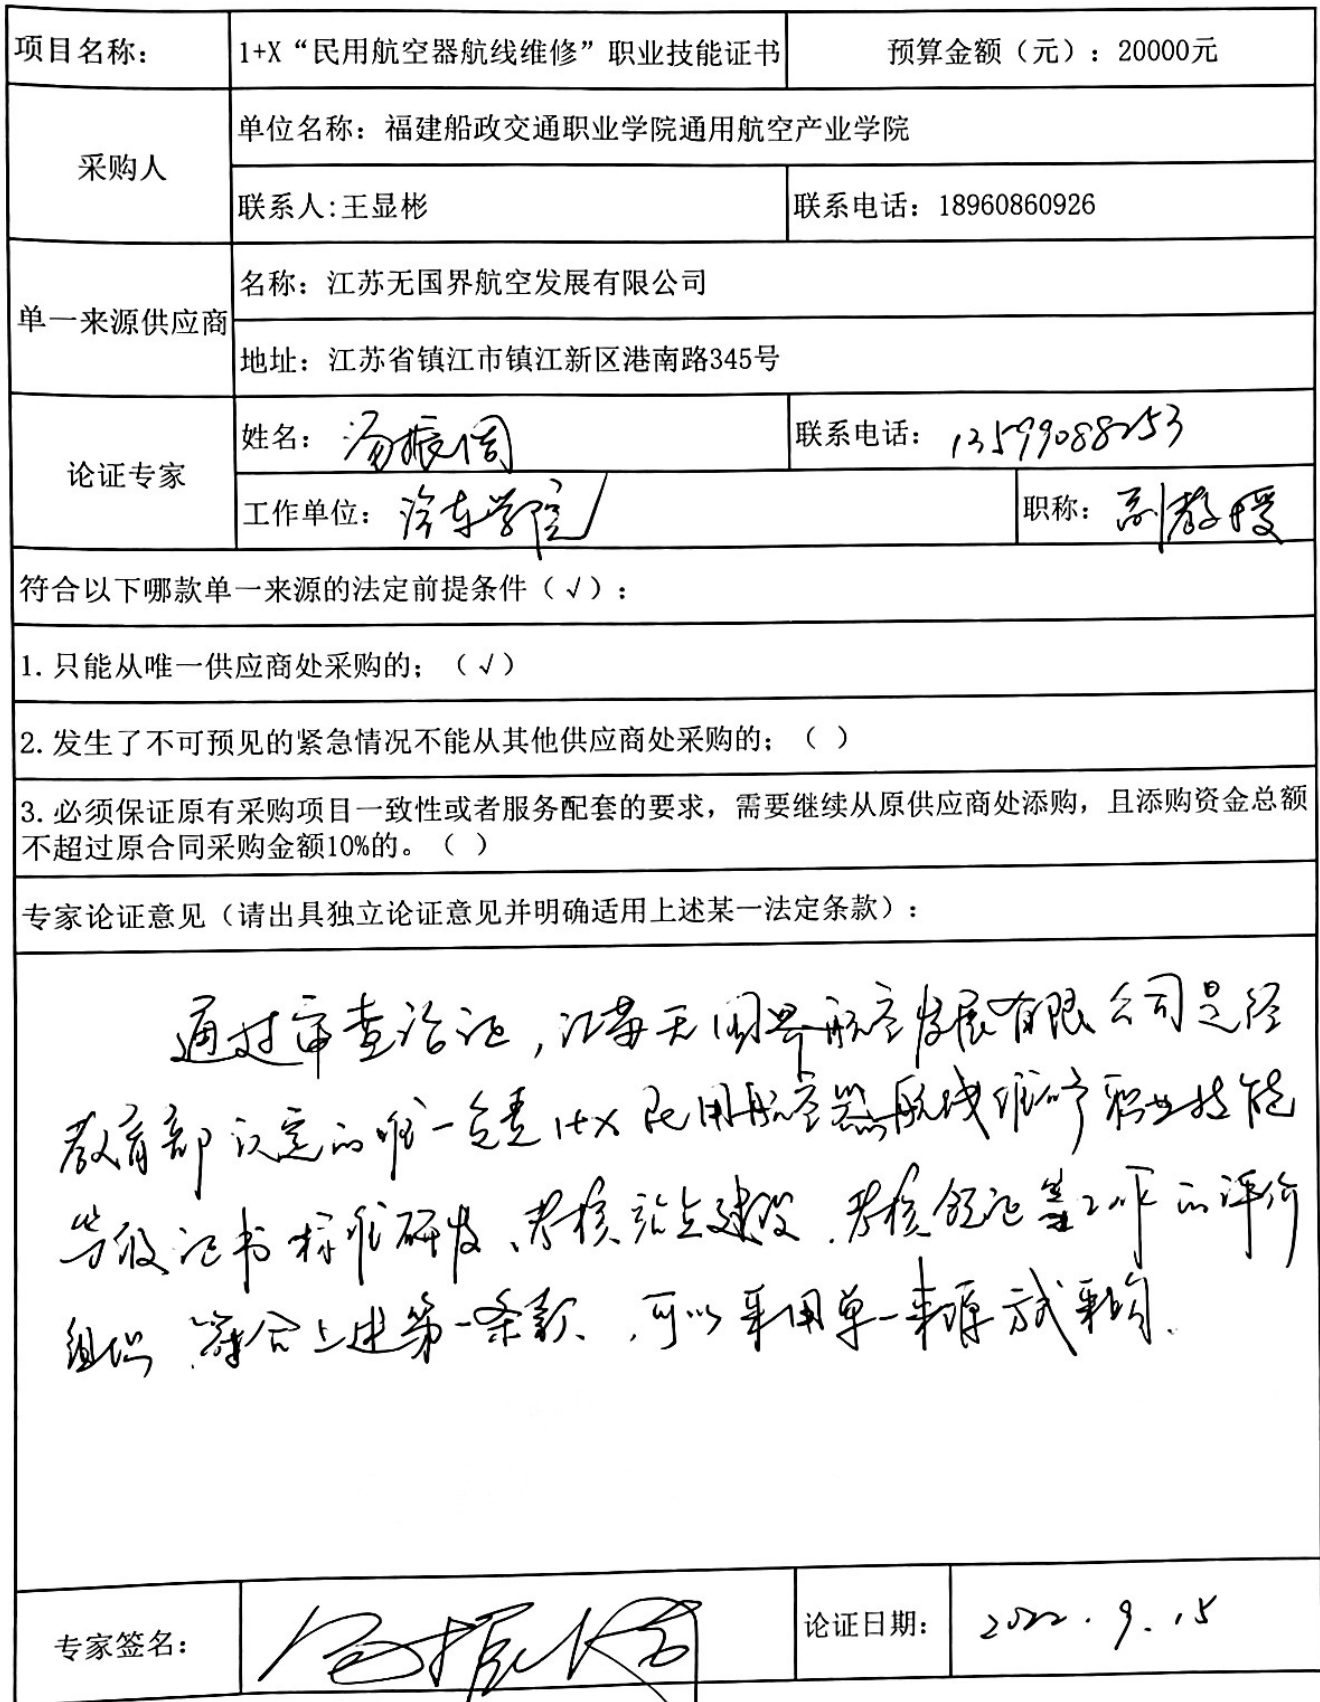 项目名称： 1+X“民用航空器航线维修”职业技能证书 预算金额（元）：20000元
采购人
单位名称：福建船政交通职业学院通用航空产业学院
联系人:王显彬 联系电话：18960860926
单一来源供应商
名称：江苏无国界航空发展有限公司
地址：江苏省镇江市镇江新区港南路345号
论证专家
姓名：汤振周 联系电话：13599088253
工作单位：汽车学院 职称：副教授
符合以下哪款单一来源的法定前提条件（√）：
1.只能从唯一供应商处采购的；（√）
2.发生了不可预见的紧急情况不能从其他供应商处采购的；（ ）
3.必须保证原有采购项目一致性或者服务配套的要求，需要继续从原供应商处添购，且添购资金总额
不超过原合同采购金额10%的。（ ）
专家论证意见（请出具独立论证意见并明确适用上述某一法定条款）：
通过审查论证，江苏无国界航空发展有限公司是经
教育部认定的唯一负责1+X民用航空器航线维修职业技能
等级证书标准研发、考核站点建设、考核颁证等工作的评价
组织，符合上述第一条款，可以采用单一来源方式采购.
专家签名：汤振周 论证日期：2022.9.15